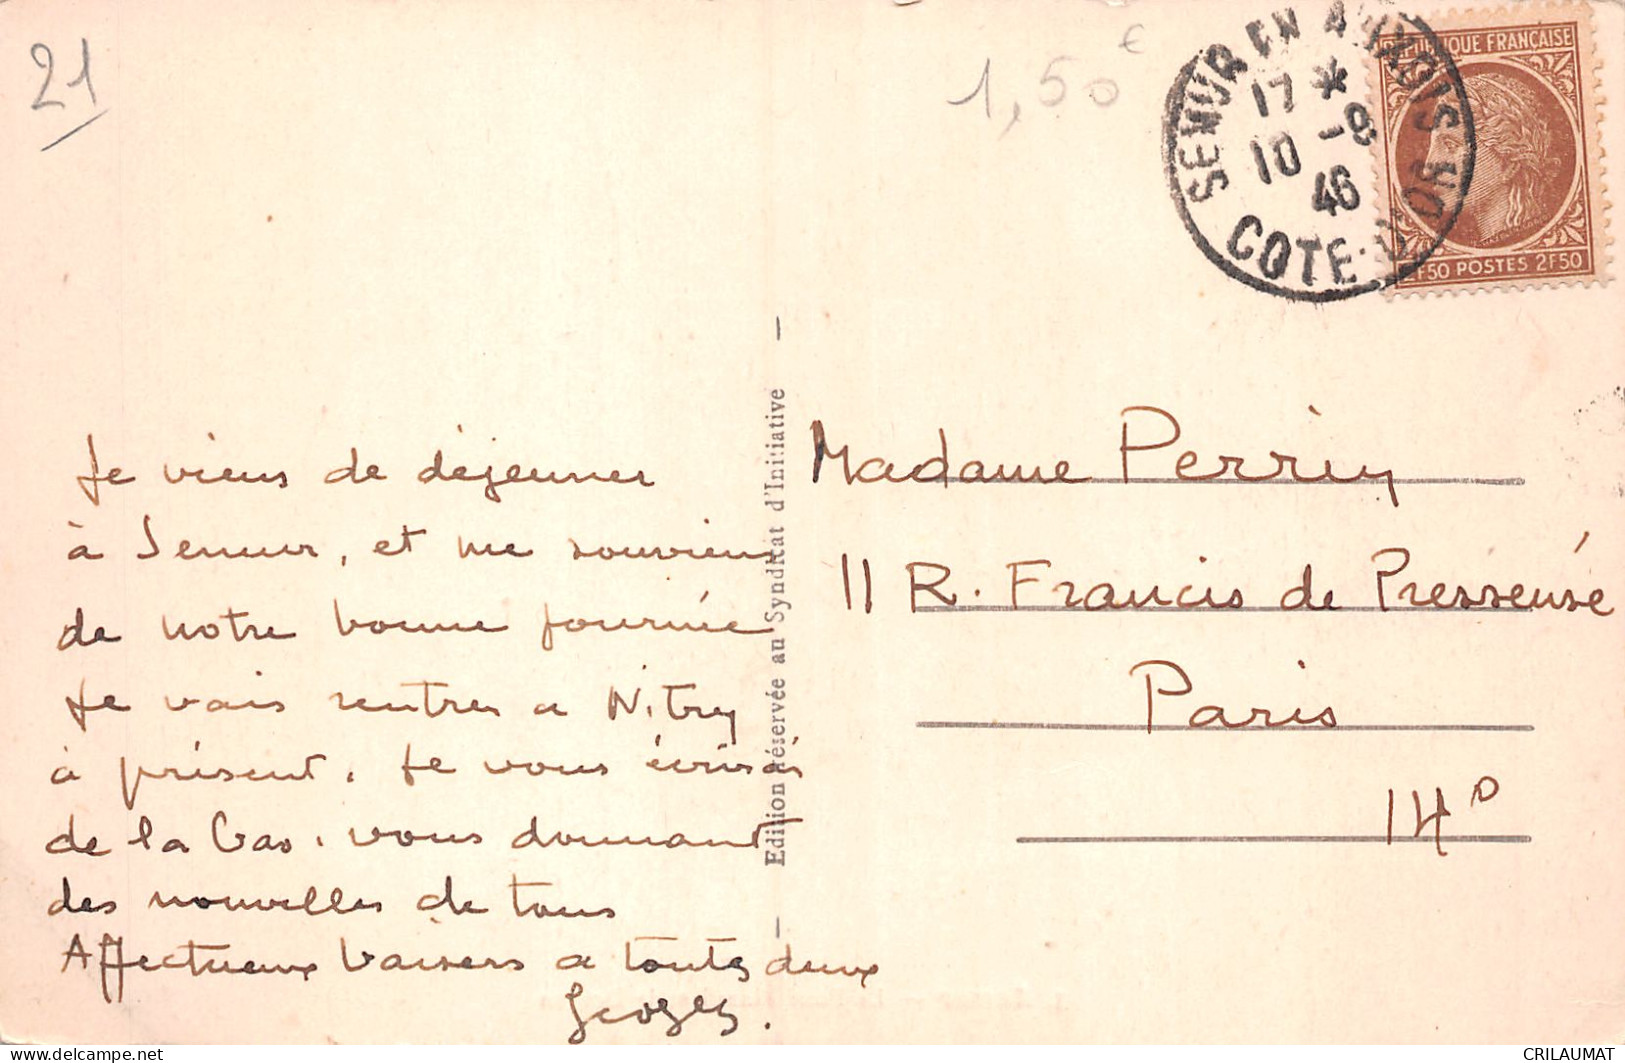 21
1,50€
SEMUR EN AUXOIS
17 *
10 -8
46
COTE-D'OR
RÉPUBLIQUE FRANÇAISE
2F50 POSTES 2F50
Je viens de déjeuner
à Semur, et me souviens
de notre bonne journée
Je vais rentrer a Nitry
à présent. Je vous écrirai
de la bas. vous donnant
des nouvelles de tous
Affectueux baisers a toutes deux
Georges.
Edition réservée au Syndicat d'Initiative
Madame Perrin
11 R. Francis de Pressensé
Paris
14e
CRILAUMAT